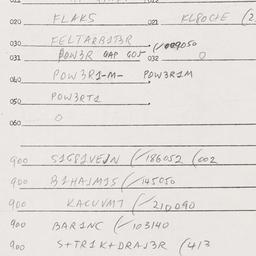 020 FLAKS 021 KL8OCIE (2
030 FELTARB1T3R (✓009050
031 POW3R GAP GOJ 032 O
040 POW3R1-M- POW3R1M
050 POW3RT1
060 O
900 S1G81VEJN (✓186052 (002
900 B1HAJM1S (✓145050
900 KACUVM7 (✓210090
900 BAR1NC (✓103140
900 S+TR1K+DRAJ3R (413